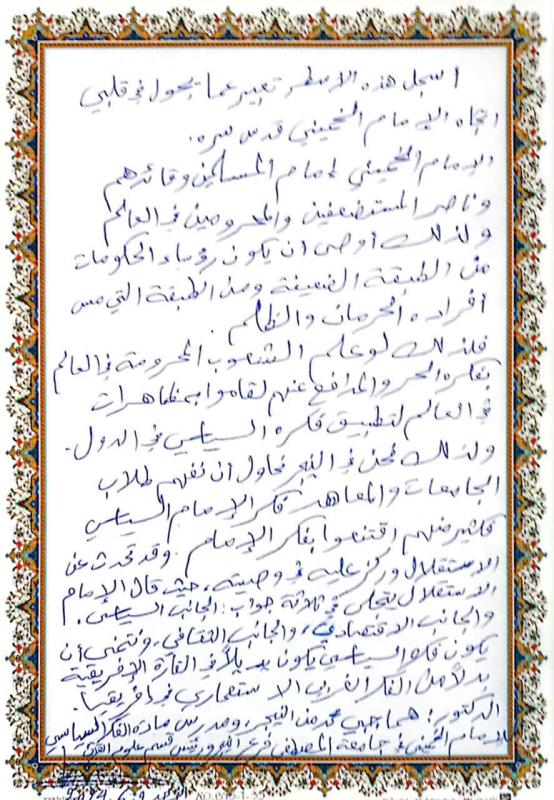 أسجل هذه الأسطر تعبير عما يجول في قلبي
اتجاه الإمام الخميني قدس سره.
الإمام الخميني إمام المسلمين وقائدهم
وناصر المستضعفين والمحرومين في العالم
ولذلك أوصى أن يكون رؤساء الحكومات
من الطبقة الضعيفة ومن الطبقة التي مس
أفراده الحرمان والظلم.
فلذلك لو علم الشعوب المحرومة في العالم
بفكره الحر والمدافع عنهم لقاموا بمظاهرات
في العالم لتطبيق فكره السياسي في الدول.
ولذلك نحن في النيجر نحاول أن نفهم طلاب
الجامعات والمعاهد فكر الإمام السياسي
فكثير منهم اقتنعوا بفكر الإمام. وقد تحدث عن
الاستقلال وركز عليه في وصيته، حيث قال الإمام
الاستقلال يتجلى في ثلاثة جوانب: الجانب السياسي.
والجانب الاقتصادي، والجانب الثقافي، ونتمنى أن
يكون فكره السياسي يكون بديلاً في القارة الإفريقية
بدلاً من الفكر الغربي الاستعماري في إفريقيا.
الدكتور: من النيجر، ومدرس مادة الفكر السياسي
للإمام الخميني في جامعة المصطفى فرع النيجر ورئيس قسم علوم القرآن